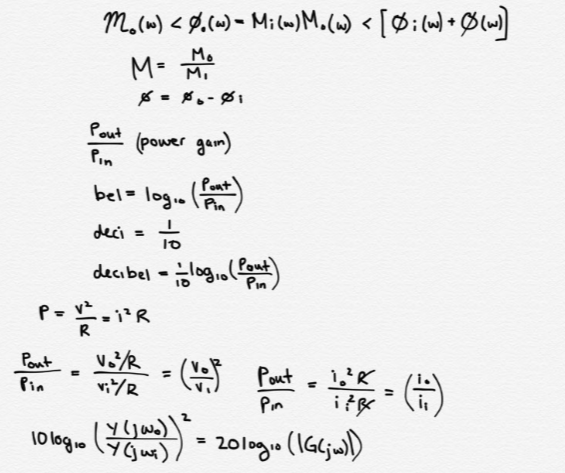 M₀(ω) < φ₀(ω) = Mᵢ(ω)M₀(ω) < [φᵢ(ω) + φ(ω)]
M = M₀/M₁
φ = φ₀ - φᵢ
Pout/Pin (power gain)
bel = log₁₀ (Pout/Pin)
deci = 1/10
decibel = 1/10 log₁₀ (Pout/Pin)
P = V²/R = i²R
Pout/Pin = V₀²/R / vᵢ²/R = (V₀/V₁)² Pout/Pin = i₀²R / iᵢ²R = (i₀/i₁)
10 log₁₀ (Y(jω₀)/Y(jωᵢ))² = 20 log₁₀ (|G(jω)|)